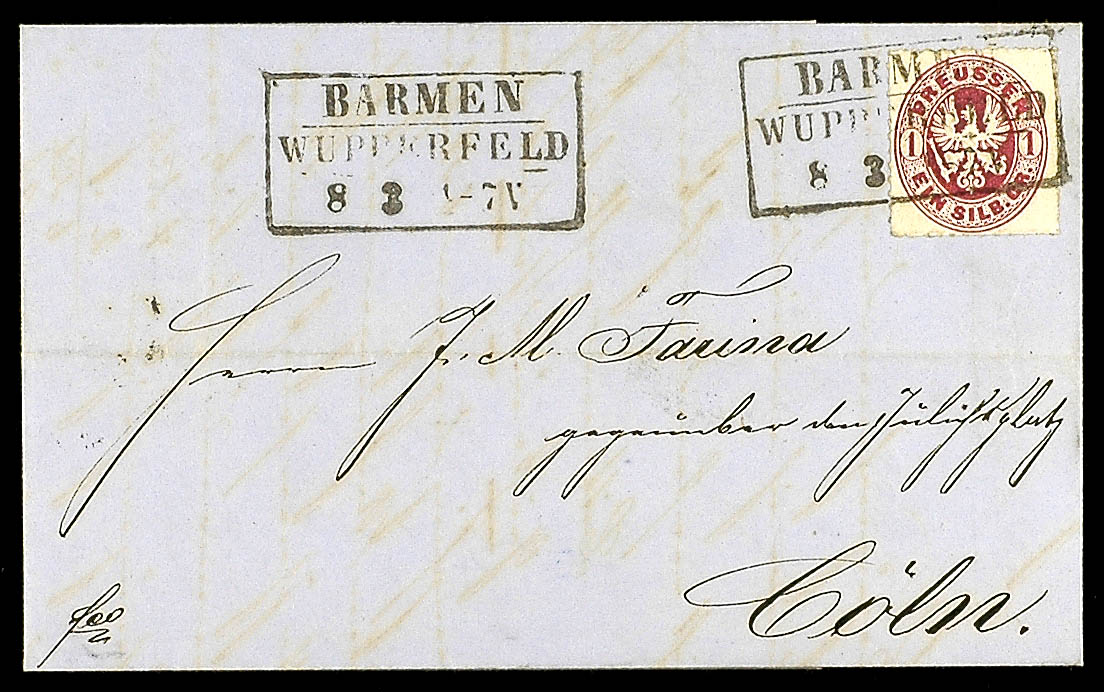 BARMEN
WUPPERFELD
8 3 -7V
BARMEN
WUPP
8 3
PREUSSEN
1 1
EIN SILB.GR.
Herrn J. M. Farina
gegenüber dem Jülichsplatz
Cöln.